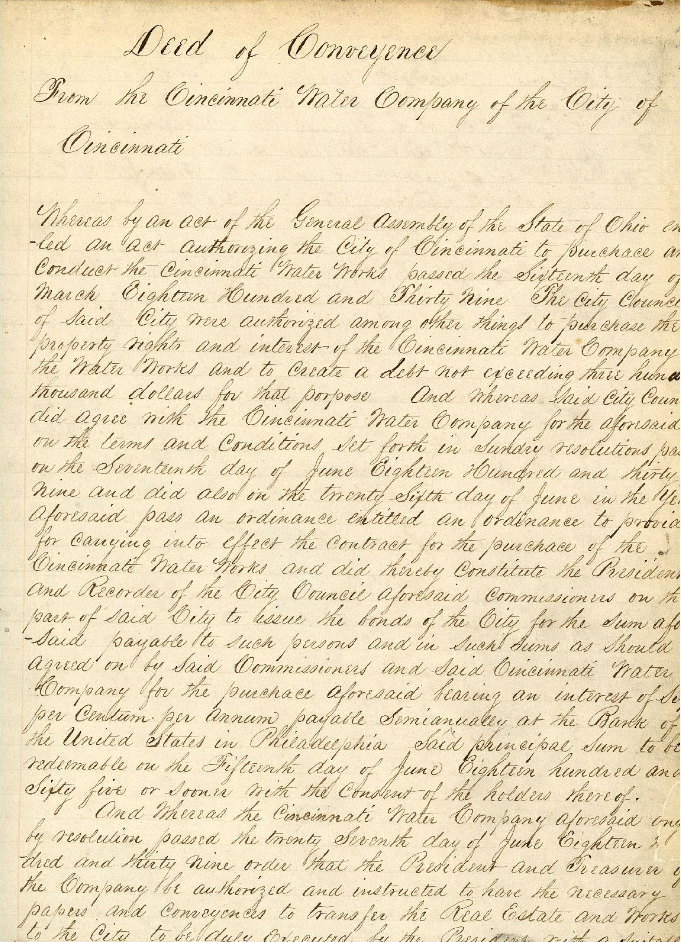 Deed of Conveyence
From the Cincinnati Water Company of the City of
Cincinnati
Whereas by an act of the General Assembly of the State of Ohio en
-led an act authorizing the City of Cincinnati to purchace an
Conduct the Cincinnati Water Works passed the Sixteenth day of
March Eighteen Hundred and Thirty Nine The City Counc
of Said City were authorized among other things to purchase the
property rights and interest of the Cincinnati Water Company
the Water Works and to create a debt not exceeding three hund
thousand dollars for that porpose And Whereas Said City Coun
did agree with the Cincinnati Water Company for the aforesaid
on the terms and Conditions Set forth in Sundry resolutions pas
on the Seventeenth day of June Eighteen Hundred and thirty
Nine and did also on the twenty Sixth day of June in the Ye
aforesaid pass an ordinance entitled an ordinance to provid
for carying into effect the contract for the purchace of the
Cincinnati Water Works and did thereby Constitute the President
and Recorder of the City Council aforesaid commissioners on th
part of Said City to issue the bonds of the City for the Sum afo
-Said payable to such persons and in Such Sums as Should
agreed on by Said Commissioners and Said Cincinnati Water
Company for the purchace aforesaid bearing an interest of Si
per Centum per annum payable Semianually at the Bank of
the United States in Philadelphia Said principal Sum to be
redeemable on the Fifteenth day of June Eighteen hundred and
Sixty five or Sooner with the Consent of the holders thereof.
And Whereas the Cincinnati Water Company aforesaid
by resolution passed the twenty Seventh day of June Eighteen
dred and thirty Nine order that the President and Treasurer
the Company be authorized and instructed to have the necessary
papers and conveyences to transfer the Real Estate and Works
to the City to be duly Executed by the President with a